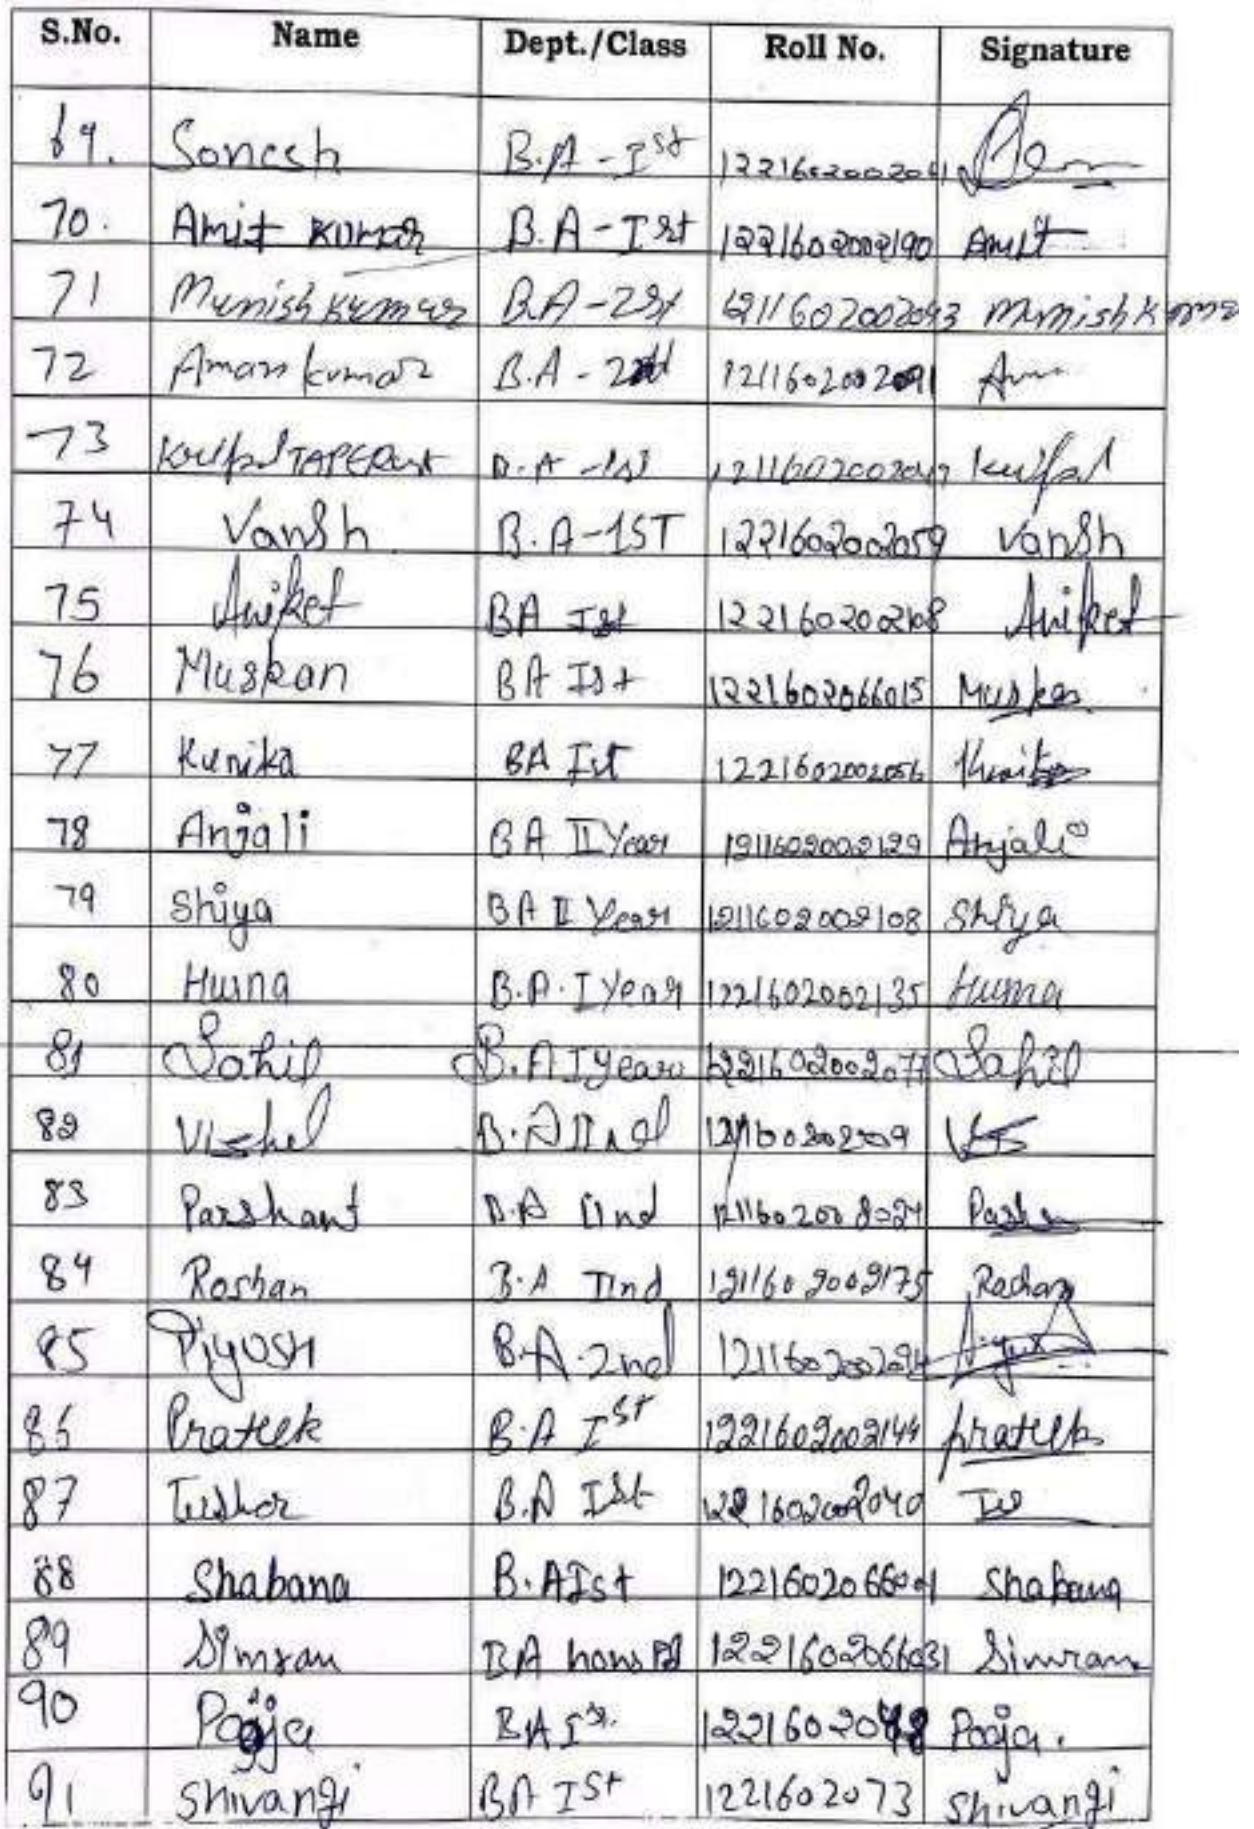 S.No. Name Dept./Class Roll No. Signature
69. Sonesh B.A - Ist
70. Amit Kumar B.A - Ist 1221602002190 Amit
71 Munish Kumar 1211602002093 Munish Kumar
72 Aman Kumar B.A - 2nd 1211602002091
73 B.A - 1st
74 Vansh B.A - 1ST 1221602002059 Vansh
75 Aniket BA Ist 1221602002108 Aniket
76 Muskan BA Ist 1221602066015 Muskan
77 Kunika BA Ist 1221602002056 Kunika
78 Anjali BA II Year 1211602002129 Anjali
79 Shiya BA II Year 1211602002108 Shiya
80 Huma B.A. I Year 1221602002135 Huma
81 Sahil B.A I Year 1221602002077 Sahil
82 Vishal B.A IInd
83 Parshant B.A IInd 1211602002024
84 Roshan B.A IInd 1211602002175 Roshan
85 Piyosh B.A. 2nd
86 Prateek B.A Ist 1221602002144 prateek
87 Tushar B.A Ist 1221602002040
88 Shabana B.A Ist Shabana
89 Simran BA hons 1221602066031 Simran
90 Pooja BA Ist Pooja.
91 Shivangi BA Ist 1221602073 Shivangi